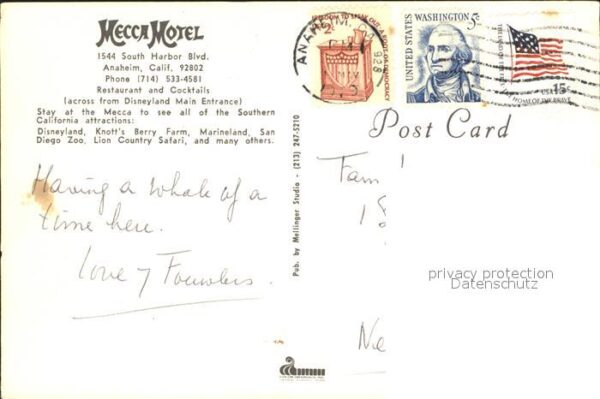 Mecca Motel
1544 South Harbor Blvd.
Anaheim, Calif. 92802
Phone (714) 533-4581
Restaurant and Cocktails
(across from Disneyland Main Entrance)
Stay at the Mecca to see all of the Southern
California attractions:
Disneyland, Knott's Berry Farm, Marineland, San
Diego Zoo, Lion Country Safari, and many others.
Having a whale of a
time here.
Love 7 Fowlers.
Pub. by Mellinger Studio - (213) 247-5210
FREEDOM TO SPEAK OUT-A ROOT OF DEMOCRACY
2c
ANAHEIM, CA
928
UNITED STATES
WASHINGTON 5c
USA 15c
Post Card
Fam
1
Ne
privacy protection
Datenschutz